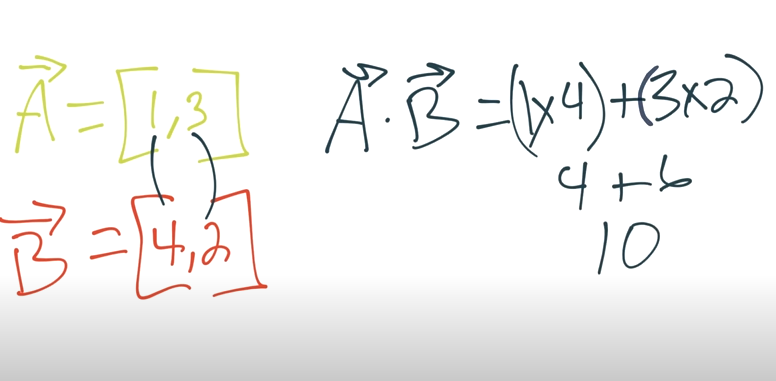 A⃗ = [1, 3]
B⃗ = [4, 2]
A⃗ · B⃗ = (1x4) + (3x2)
4 + 6
10